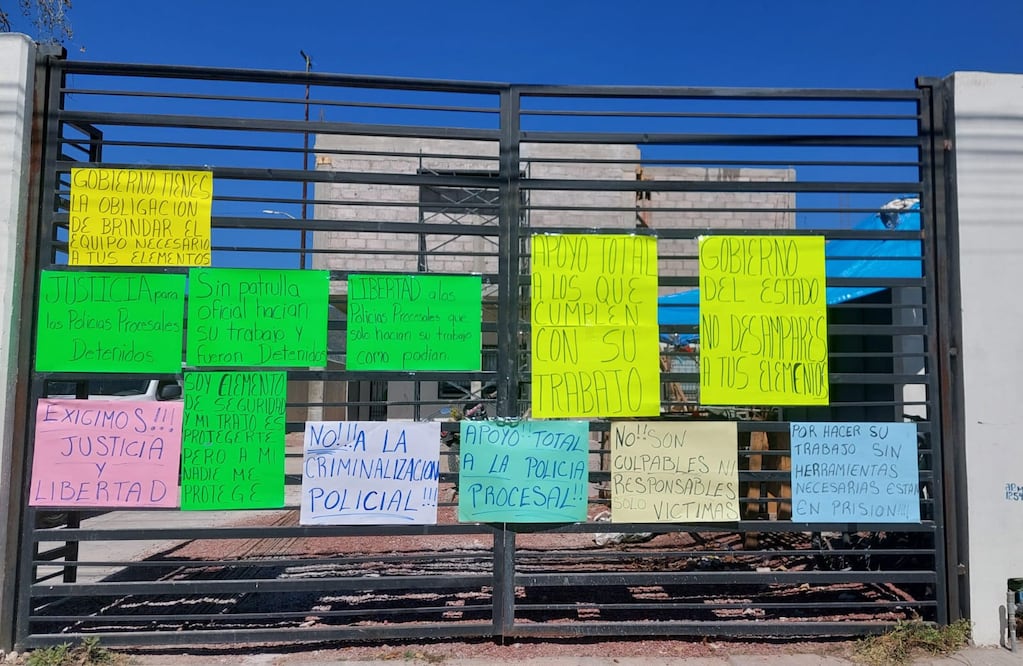 GOBIERNO TIENES
LA OBLIGACION
DE BRINDAR EL
EQUIPO NECESARIO
A TUS ELEMENTOS
JUSTICIA para
los Policias Procesales
Detenidos.
Sin patrulla
oficial hacian
su trabajo y
fueron Detenidos
LIBERTAD a los
Policias Procesales que
solo hacian su trabajo
como podian.
APOYO TOTAL
A LOS QUE
CUMPLEN
CON SU
TRABAJO
GOBIERNO
DEL ESTADO
NO DESAMPARES
A TUS ELEMENTOS
EXIGIMOS!!!
JUSTICIA
Y
LIBERTAD
SOY ELEMENTO
DE SEGURIDAD
Y MI TRATO ES
PROTEGERTE
PERO A MI
NADIE ME
PROTEGE
NO!!! A LA
CRIMINALIZACION
POLICIAL!!!
APOYO!! TOTAL
A LA POLICIA
PROCESAL!!
NO!! SON
CULPABLES NI
RESPONSABLES
SOLO VICTIMAS
POR HACER SU
TRABAJO SIN
HERRAMIENTAS
NECESARIAS ESTAN
EN PRISION!!!!